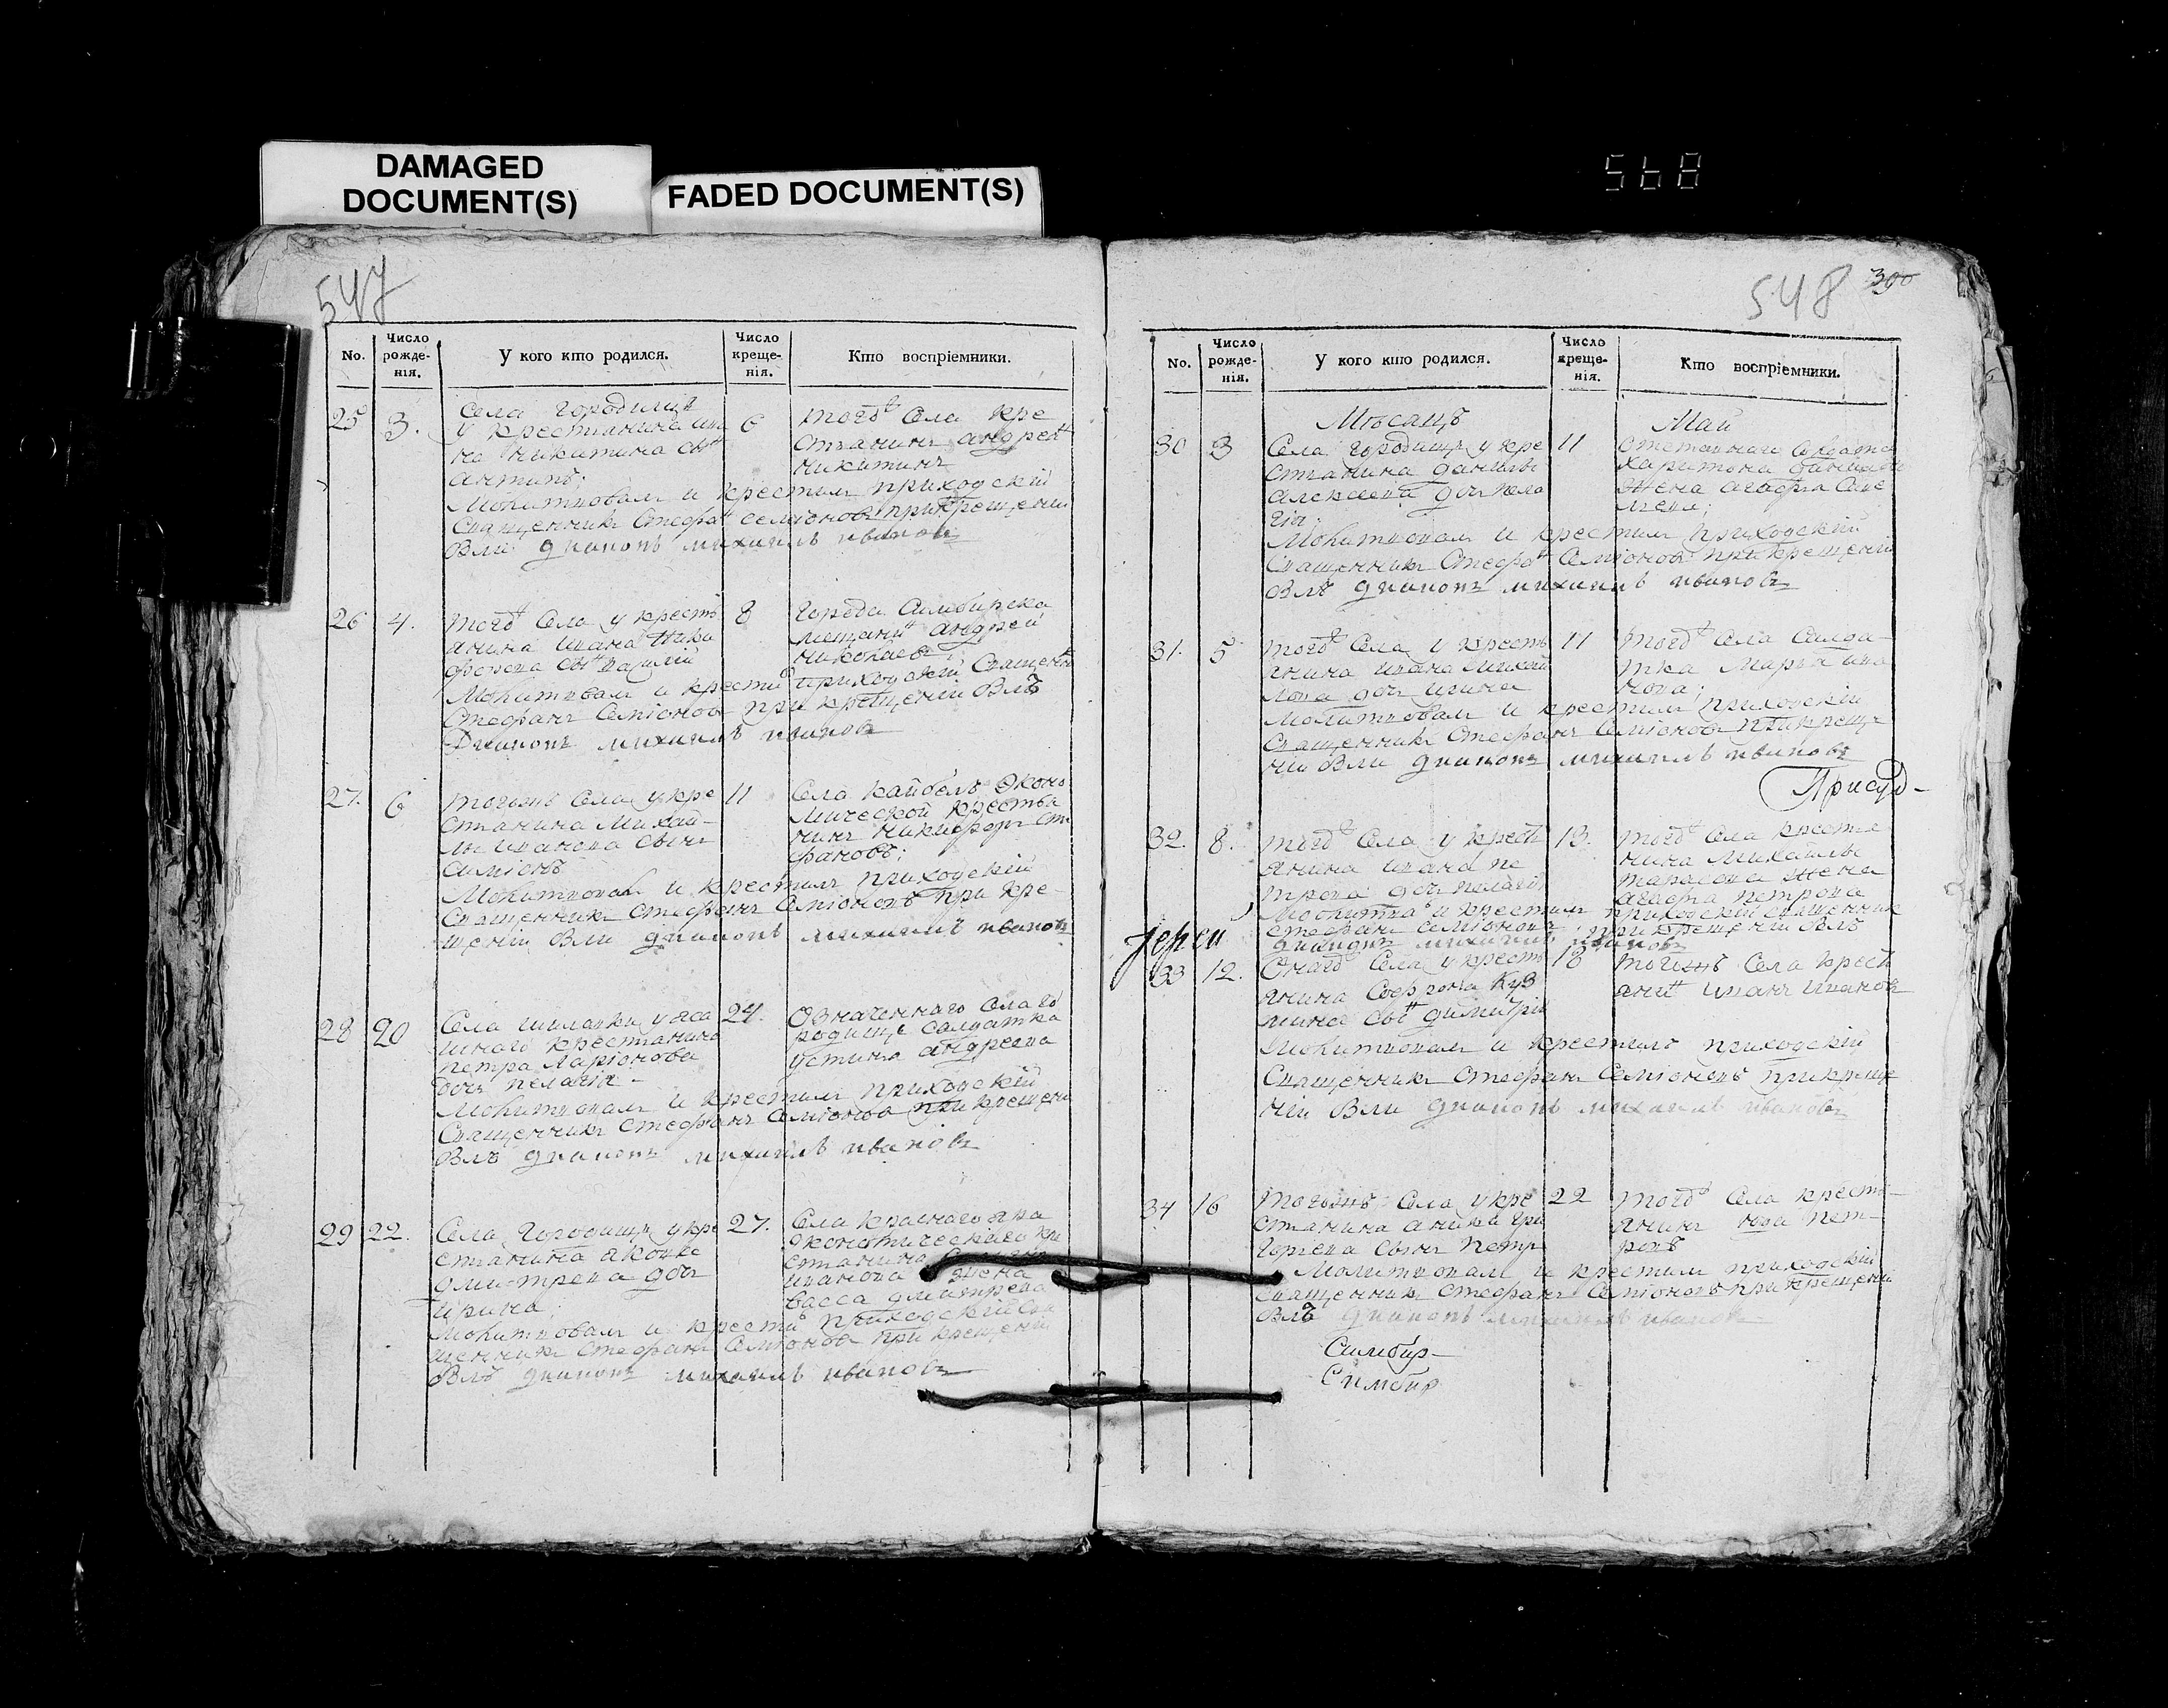 DAMAGED
DOCUMENT(S)
FADED DOCUMENT(S)
568
547
No.
Число рожденія.
У кого кто родился.
Число крещенія.
Кто воспріемники.
25 3.
Села городищь
у крестьянина ива
на никитина сы
антипъ;
6
того села кре
стьянинъ андрей
никитинъ
Молитвовалъ и крестилъ приходскій
Священникъ Стефа Семіоновъ при крещеніи
Были диаконъ михаилъ ивановъ
26 4.
того Села у кресть
янина ивана Ники
форова сы василій
8
города Симбирска
мещанин андрей
николаевъ;
Молитвовал и крести приходскій Священн
Стефанъ Семіонов при крещеніи Былъ
Диаконъ михаилъ ивановъ
27. 6
тогожъ Села у кре
стьянина Михай
лы иванова сынъ
симіонъ
11
Села кайбелъ эконо
мической крестья
нинъ никифоръ сте
фановъ;
Молитвовал и крестилъ приходскій
Священникъ Стефанъ Семіоновъ при кре
щеніи Были диаконъ михаилъ ивановъ
28 20
Села шиловки у яса
шнаго крестьянина
петра ларіонова
дочь пелагія
24.
Означеннаго села го
родище салдатка
устина андреева
Молитвовалъ и крестилъ приходскій
Священникъ Стефанъ Семіонов при крещеніи
Былъ диаконъ михаилъ ивановъ
29 22.
Села городищь у кре
стьянина якова
дмитрева дочь
ирина;
27.
Села краснаго яра
экономическаго кре
стьянина
иванова жена
васса дмитрева
Молитвовалъ и крести приходскій Свя
щенникъ Стефанъ Семіонов при крещеніи
Былъ диаконъ михаилъ ивановъ
548 300
No.
Число рожденія.
У кого кто родился.
Число крещенія.
Кто воспріемники.
Мѣсяцъ Май
30 3
Села городищь у кре
стьянина данилы
алексеева дочь пела
гія
11
харитона данилов
жена агафья Саве
лиева;
Молитвовал и крестил приходскій
Священникъ Стефа Семіонов при крещеніи
Былъ диаконъ михаилъ ивановъ
31. 5
того Села у кресть
янина ивана михай
лова дочь ирина
11
того села салда
тка марья ива
нова;
Молитвовалъ и крестилъ приходскій
Священникъ Стефанъ Семіонов при креще
ніи Были диаконъ михаилъ ивановъ
Присуд-
32. 8.
того Села у кресть
янина ивана пе
трова дочь пелагія
13.
того села крестья
нина михайлы
тарасова жена
агафья петрова
Молитва и крестил приходскій священник
стефанъ семіоновъ при крещеніи Былъ
диаконъ михаилъ ивановъ
Іереи
33 12.
Онаго Села у кресть
янина Софрона куз
мина сы димитрій
18
тогожъ Села кресть
янин иванъ ивановъ
Молитвовалъ и крестилъ приходскій
Священникъ Стефанъ Семіоновъ при креще
ніи Были диаконъ михаилъ ивановъ
34 16
тогожъ Села у кре
стьянина аники гри
горьева сынъ петръ
22
того села кресть
янинъ иова пет
ровъ
Молитвовал и крестил приходскій
священник Стефанъ Семіоновъ при крещеніи
Былъ диаконъ михаилъ ивановъ
Симбир-
Симбир